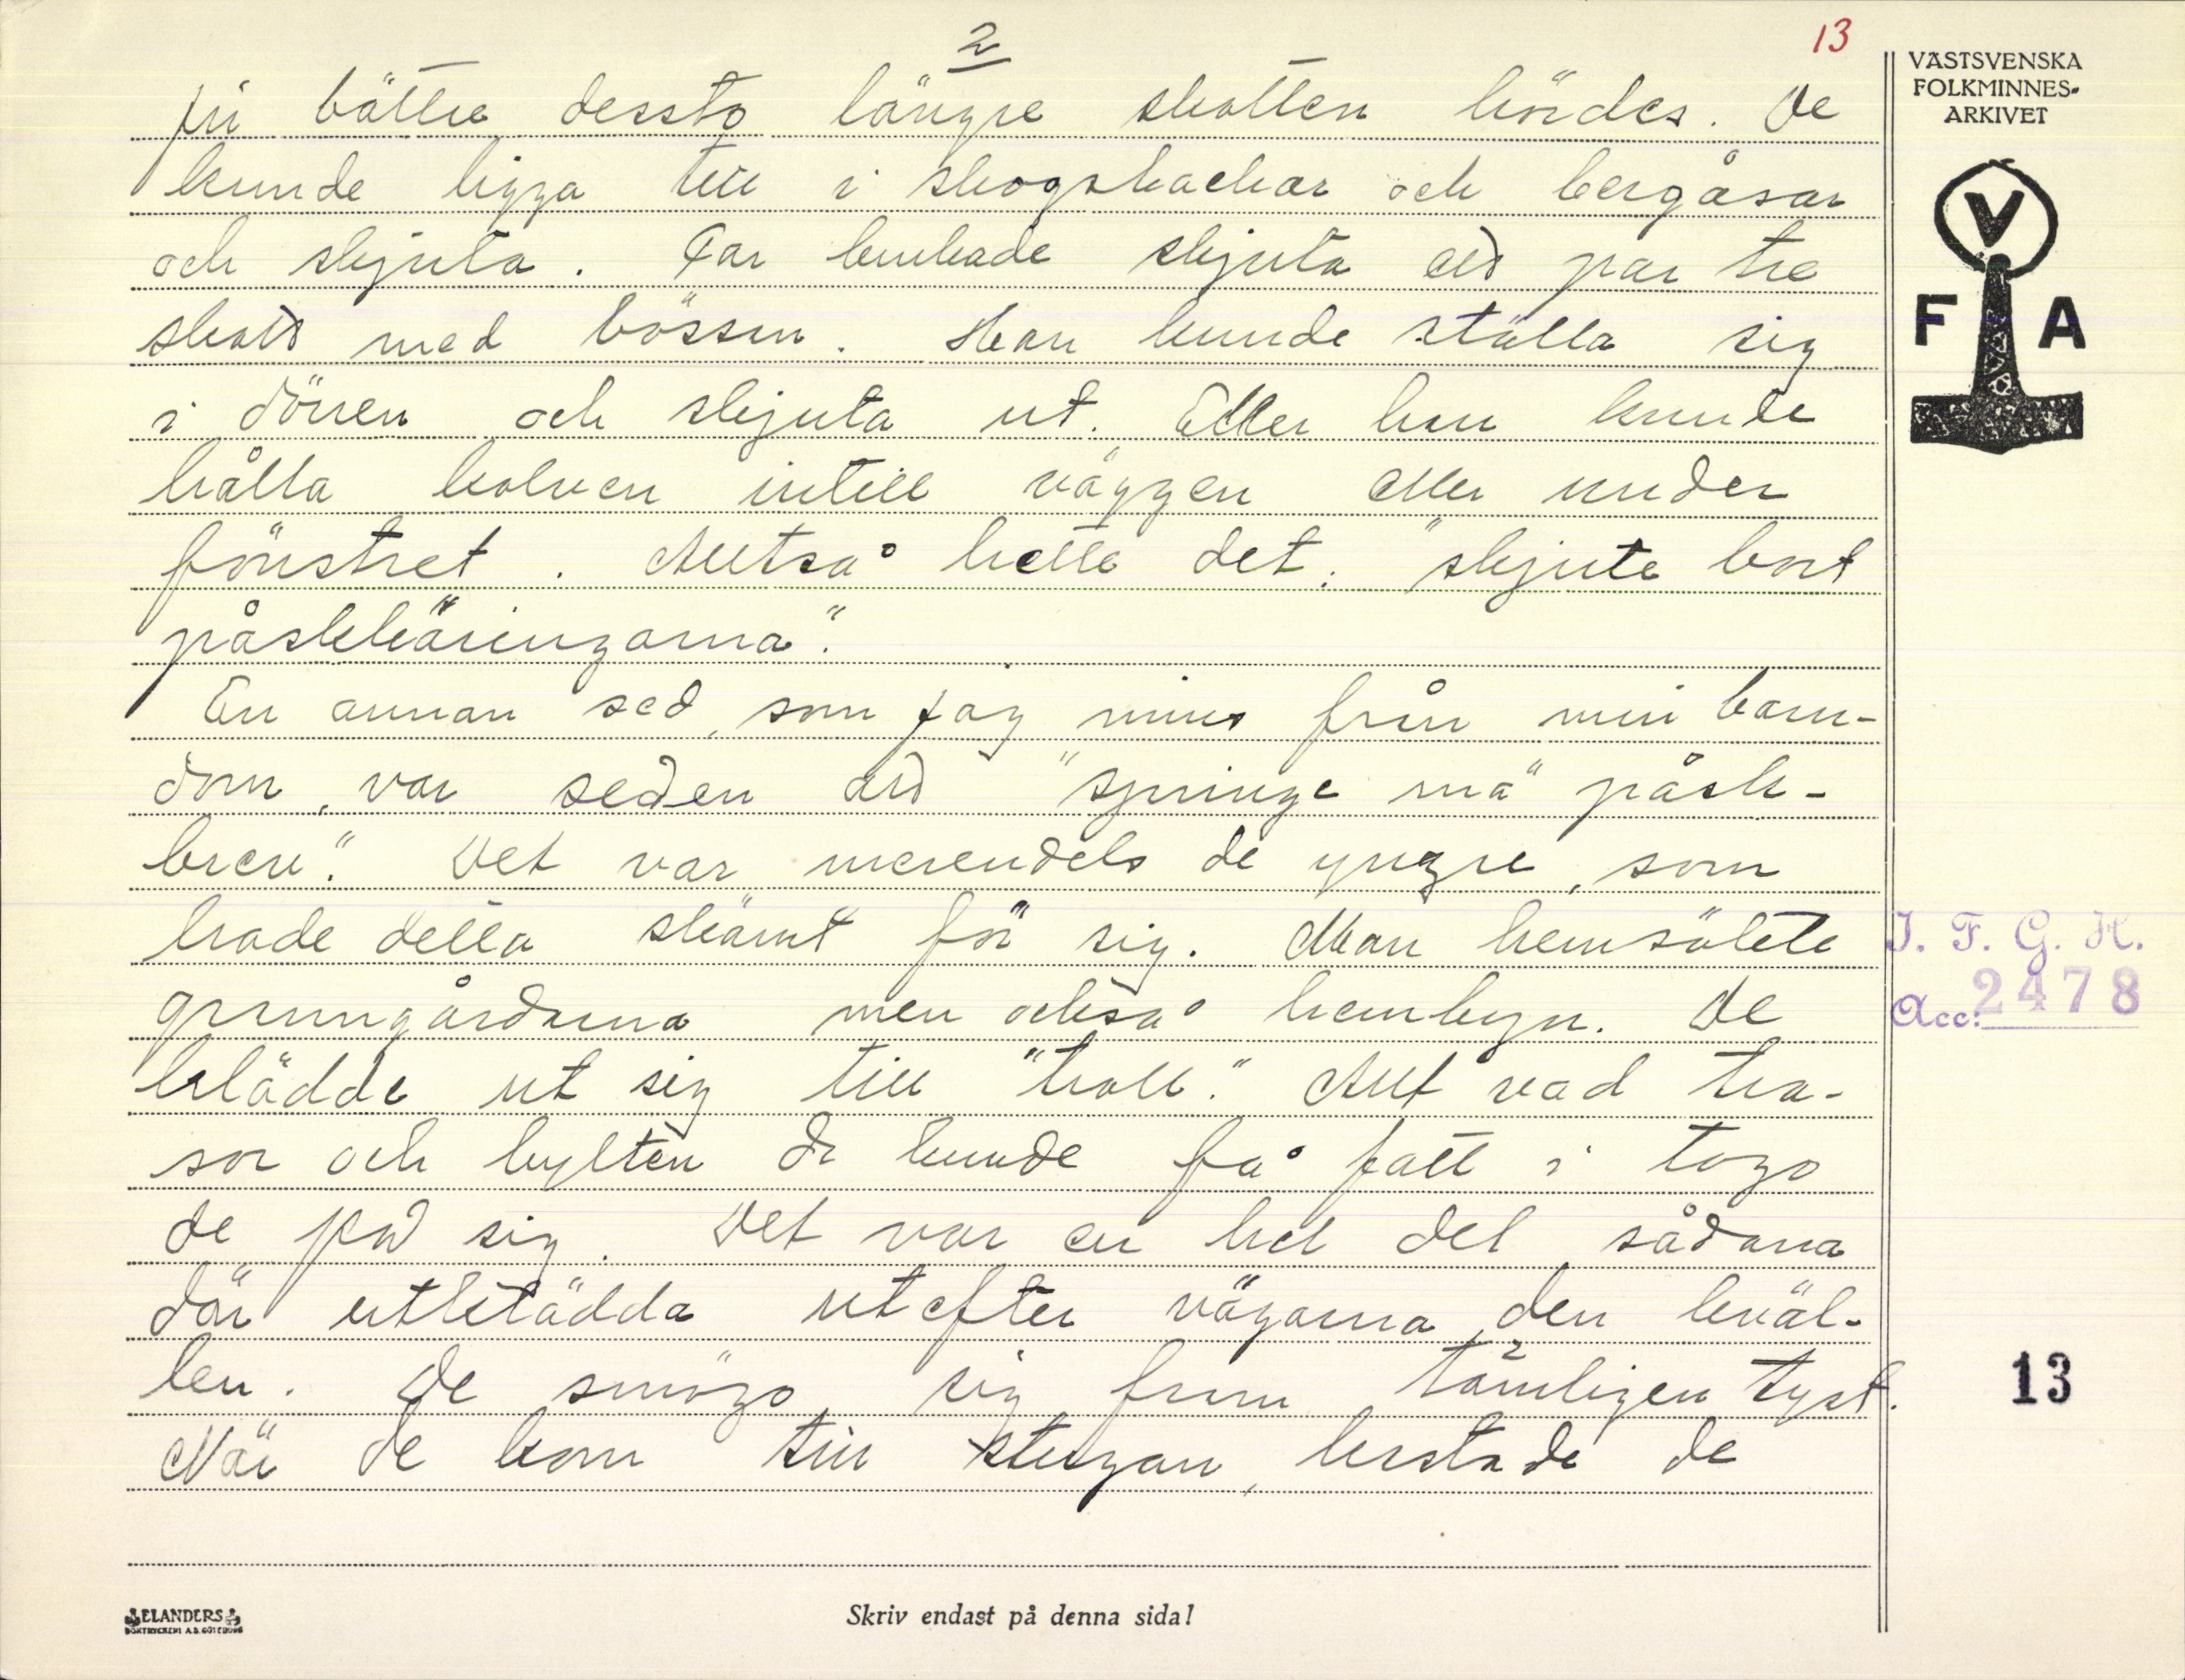 2
13
VÄSTSVENSKA
FOLKMINNES-
ARKIVET
V
F A
ju bättre dessto längre skotten hördes. De
kunde ligga till i skogsbackar och bergåsar
och skjuta. Far brukade skjuta ett par tre
skott med bössan. Han kunde ställa sig
i dörren och skjuta ut. Eller han kunde
hålla kolven intill väggen eller under
fönstret. Alltså hette det: "skjute bort
påskkäringarna".
En annan sed, som jag minns från min barn-
dom, var seden att "springe mä" påsk-
brev." Det var merendels de yngre, som
hade detta skämt för sig. Man hemsökte
granngårdarna men också hembyn. De
klädde ut sig till "troll." Allt vad tra-
sor och bylten de kunde få fatt i togo
de på sig. Det var en hel del sådana
där utklädda utefter vägarna den kväl-
len. De smögo sig fram tämligen tyst.
När de kom till stugan, kastade de
I. F. G. H.
Acc: 2478
13
ELANDERS
BOKTRYCKERI A.B. GÖTEBORG
Skriv endast på denna sida!